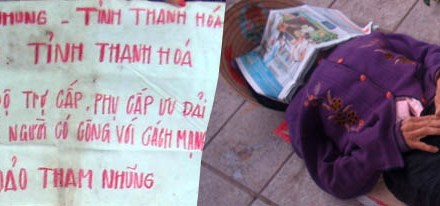 NHUNG - TỈNH THANH HOÁ
TỈNH THANH HOÁ
TRỢ CẤP, PHỤ CẤP ƯU ĐÃI
NGƯỜI CÓ CÔNG VỚI CÁCH MẠNG
THAM NHŨNG